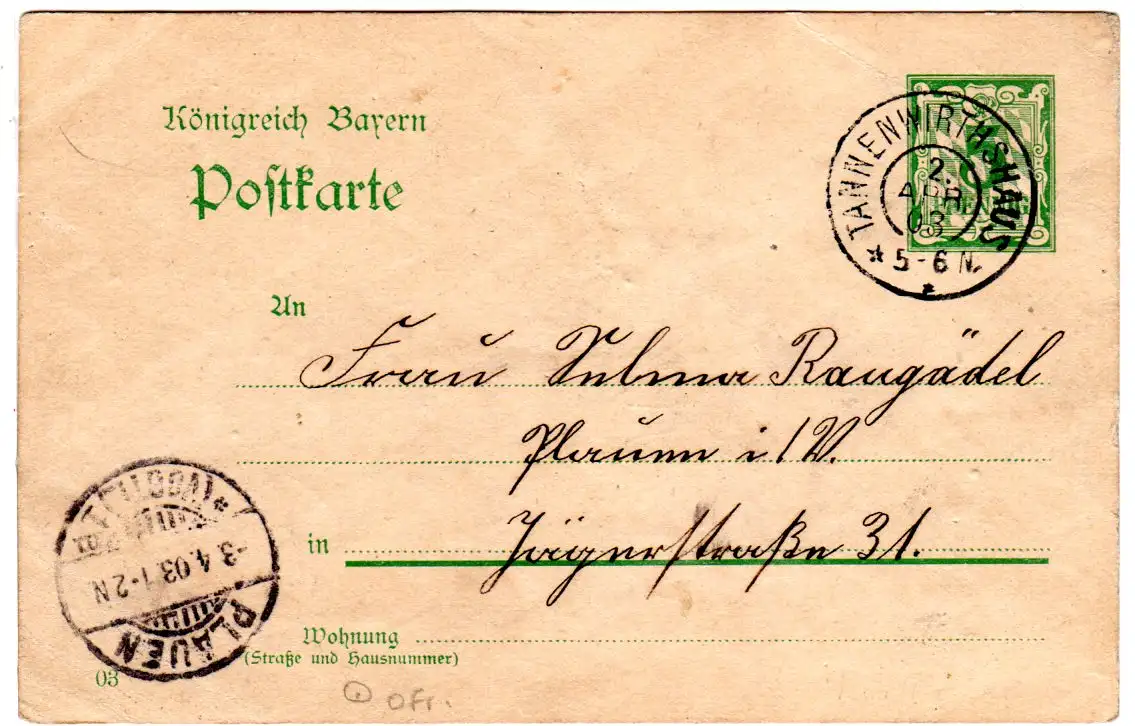 Königreich Bayern
Postkarte
TANNENWIRTHSHAUS
2.
APR
03
5-6 N.
An
Frau Selma Raugädel
Plauen i/V.
in Jägerstraße 31.
Wohnung
(Straße und Hausnummer)
(VOGTL.)
-3.4.03 1-2N
PLAUEN
03
Ofr.